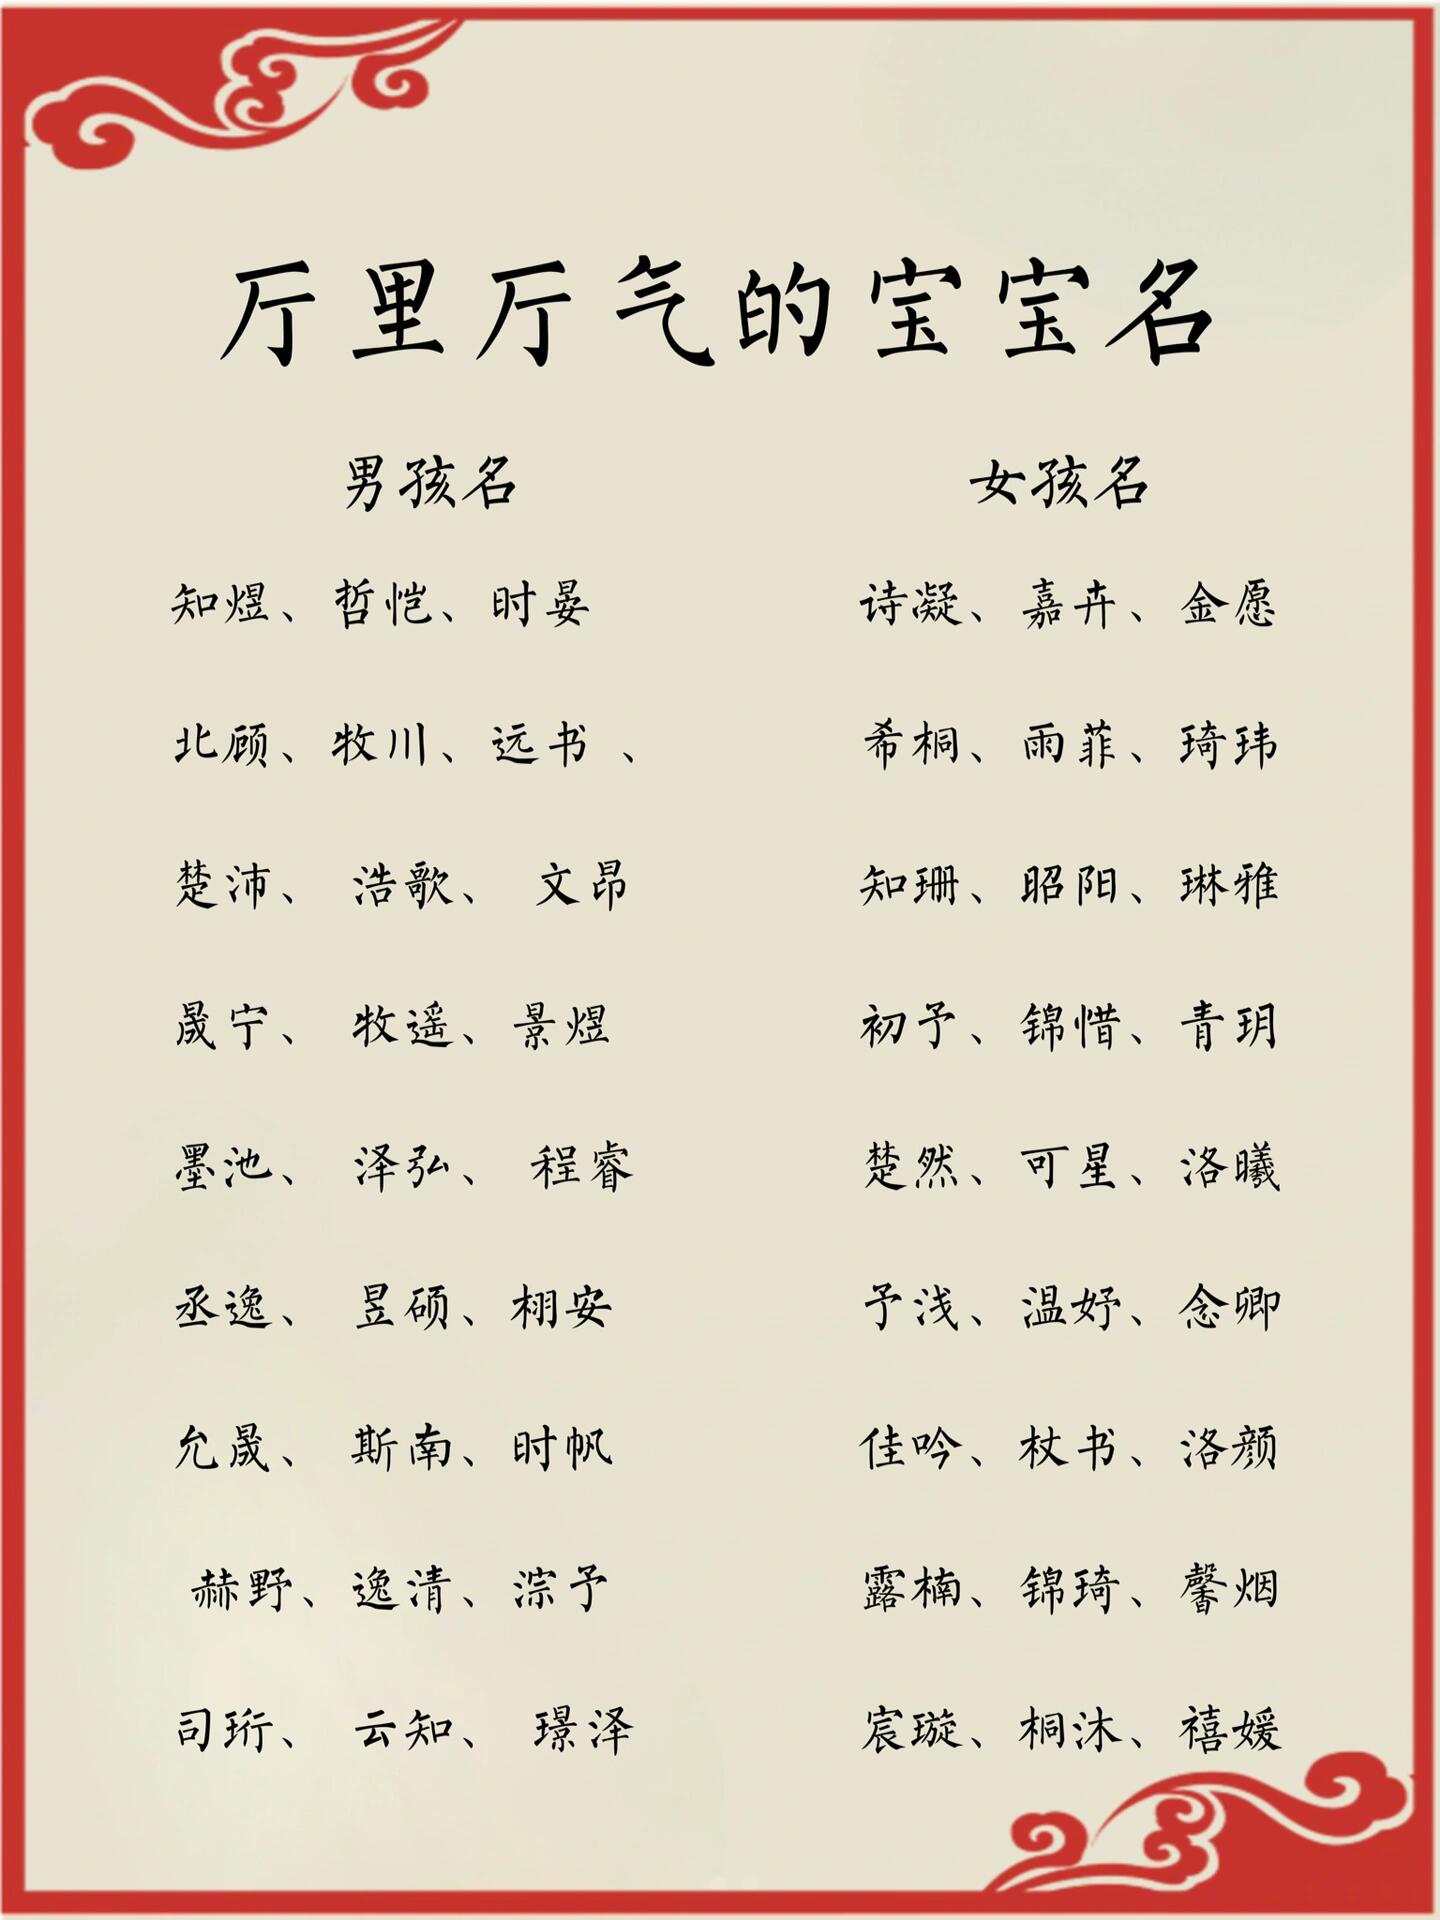 厅里厅气的宝宝名
男孩名 女孩名
知煜、哲恺、时晏 诗凝、嘉卉、金愿
北顾、牧川、远书 、 希桐、雨菲、琦玮
楚沛、 浩歌、 文昂 知珊、昭阳、琳雅
晟宁、 牧遥、景煜 初予、锦惜、青玥
墨池、 泽弘、 程睿 楚然、可星、洛曦
丞逸、 昱硕、栩安 予浅、温妤、念卿
允晟、 斯南、时帆 佳吟、杖书、洛颜
赫野、逸清、淙予 露楠、锦琦、馨烟
司珩、 云知、 璟泽 宸璇、桐沐、禧媛